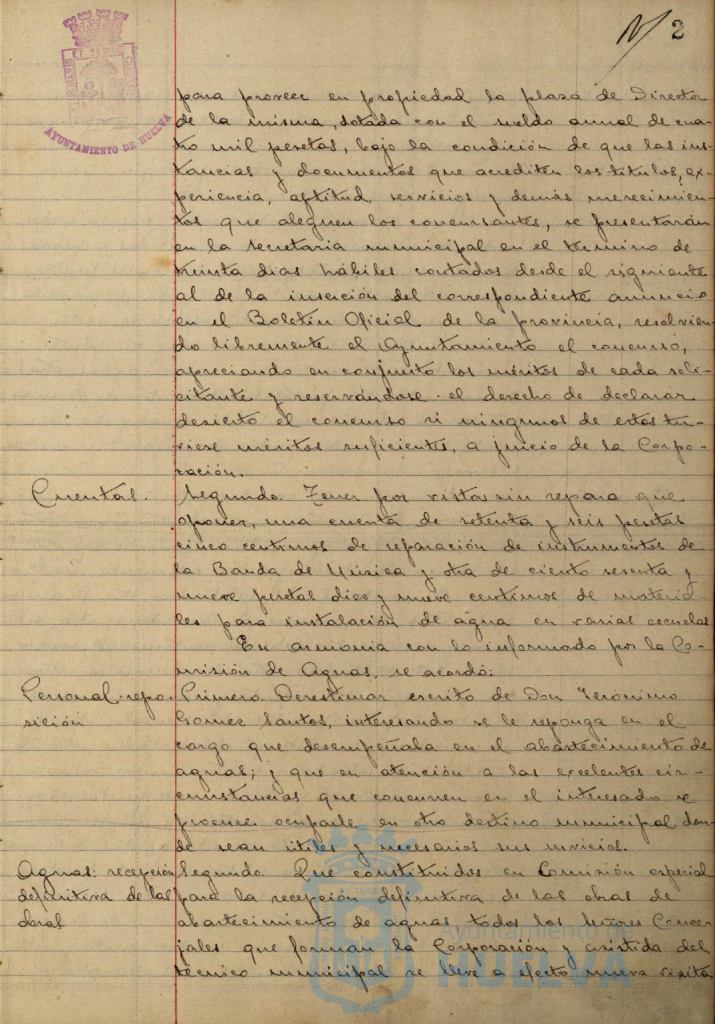 N/ 2
AYUNTAMIENTO DE HUELVA
para proveer en propiedad la plaza de Director
de la misma, dotada con el sueldo anual de cua-
tro mil pesetas, bajo la condición de que las ins-
tancias y documentos que acrediten los titulos, ex-
periencia, aptitud, servicios y demás merecimien-
tos que aleguen los concursantes, se presentarán
en la Secretaria municipal en el término de
treinta dias hábiles contados desde el siguiente
al de la inserción del correspondiente anuncio
en el Boletin Oficial de la provincia, resolvien-
do libremente el Ayuntamiento el concurso,
apreciando en conjunto los méritos de cada soli-
citante y reservándose el derecho de declarar
desierto el concurso si ningunos de estos tu-
viese méritos suficientes, a juicio de la Corpo-
ración.
Cuentas.
Segundo. Tener por vistas sin reparo que
oponer, una cuenta de setenta y seis pesetas
cinco centimos de reparación de instrumentos de
la Banda de Música y otra de ciento sesenta y
nueve pesetas diez y nueve centimos de materia-
les para instalación de agua en varias escuelas
En armonia con lo informado por la Co-
misión de Aguas, se acordó:
Personal-repo-
sición
Primero. Desestimar escrito de Don Jeronimo
Gomez Santos, interesando se le reponga en el
cargo que desempeñaba en el abastecimiento de
aguas; y que en atención a las excelentes cir-
cunstancias que concurren en el interesado se
procure ocuparle en otro destino municipal don-
de sean útiles y necesarios sus servicios.
Aguas: recepción
definitiva de las
obras
Segundo. Que constituidos en Comisión especial
para la recepción definitiva de las obras de
abastecimiento de aguas, todos los Señores Conce-
jales que forman la Corporación y asistida del
técnico municipal se lleve a efecto nueva visita
Ayuntamiento de
HUELVA